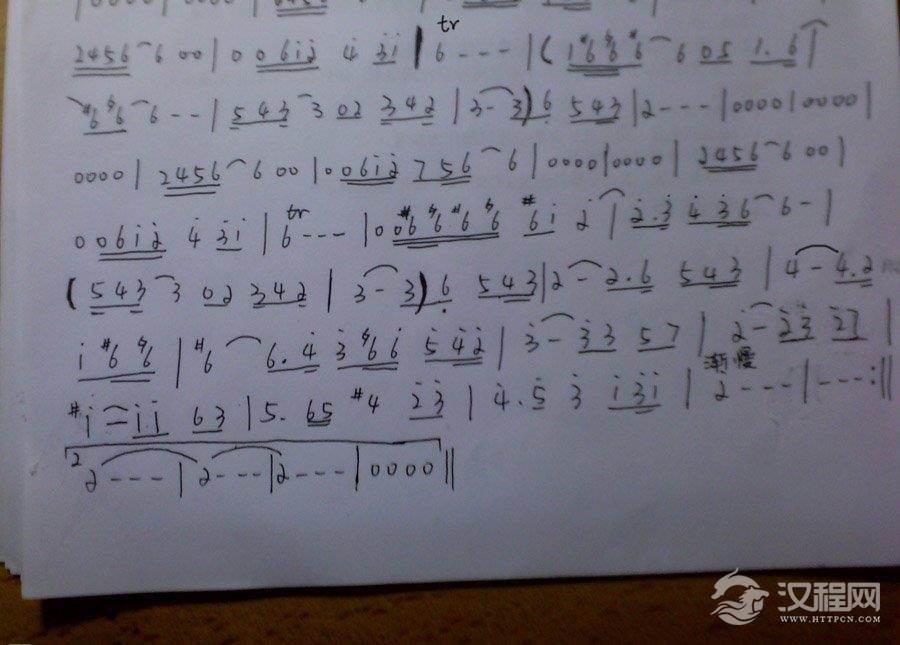 tr
2456 6 00 | 0 061̇2̇ 4̇ 3̇1̇ | 6 - - - | ( 1 #6 ♮6 #6 6 05 1. 6 |
#6 ♮6 6 - - | 543 3 02 342 | 3 - 3 ) 6 543 | 2 - - - | 0000 | 0000 |
0000 | 2456 6 00 | 0 061̇2̇ 7 56 6 | 0000 | 0000 | 2456 6 00 |
tr
0 061̇2̇ 4̇ 3̇1̇ | 6 - - - | 00 #6 ♮6 #6 ♮6 #6 1̇ 2̇ | 2̇. 3̇ 4̇ 3̇6 6 - |
( 543 3 02 342 | 3 - 3 ) 6 543 | 2 - 2. 6 543 | 4 - 4. 2
1̇ #6 ♮6 | #6 6. 4̇ 3̇ ♮6 1̇ 5̇4̇2̇ | 3̇ - 3̇3̇ 57 | 2̇ - 2̇3̇ 2̇7 |
渐慢
#1̇ - 1̇1̇ 63 | 5. 65 #4 2̇3̇ | 4̇. 5̇ 3̇ 1̇3̇1̇ | 2̇ - - - | - - - :||
2
2̇ - - - | 2̇ - - - | 2̇ - - - | 0000 ||
汉程网
WWW.HTTPCN.COM